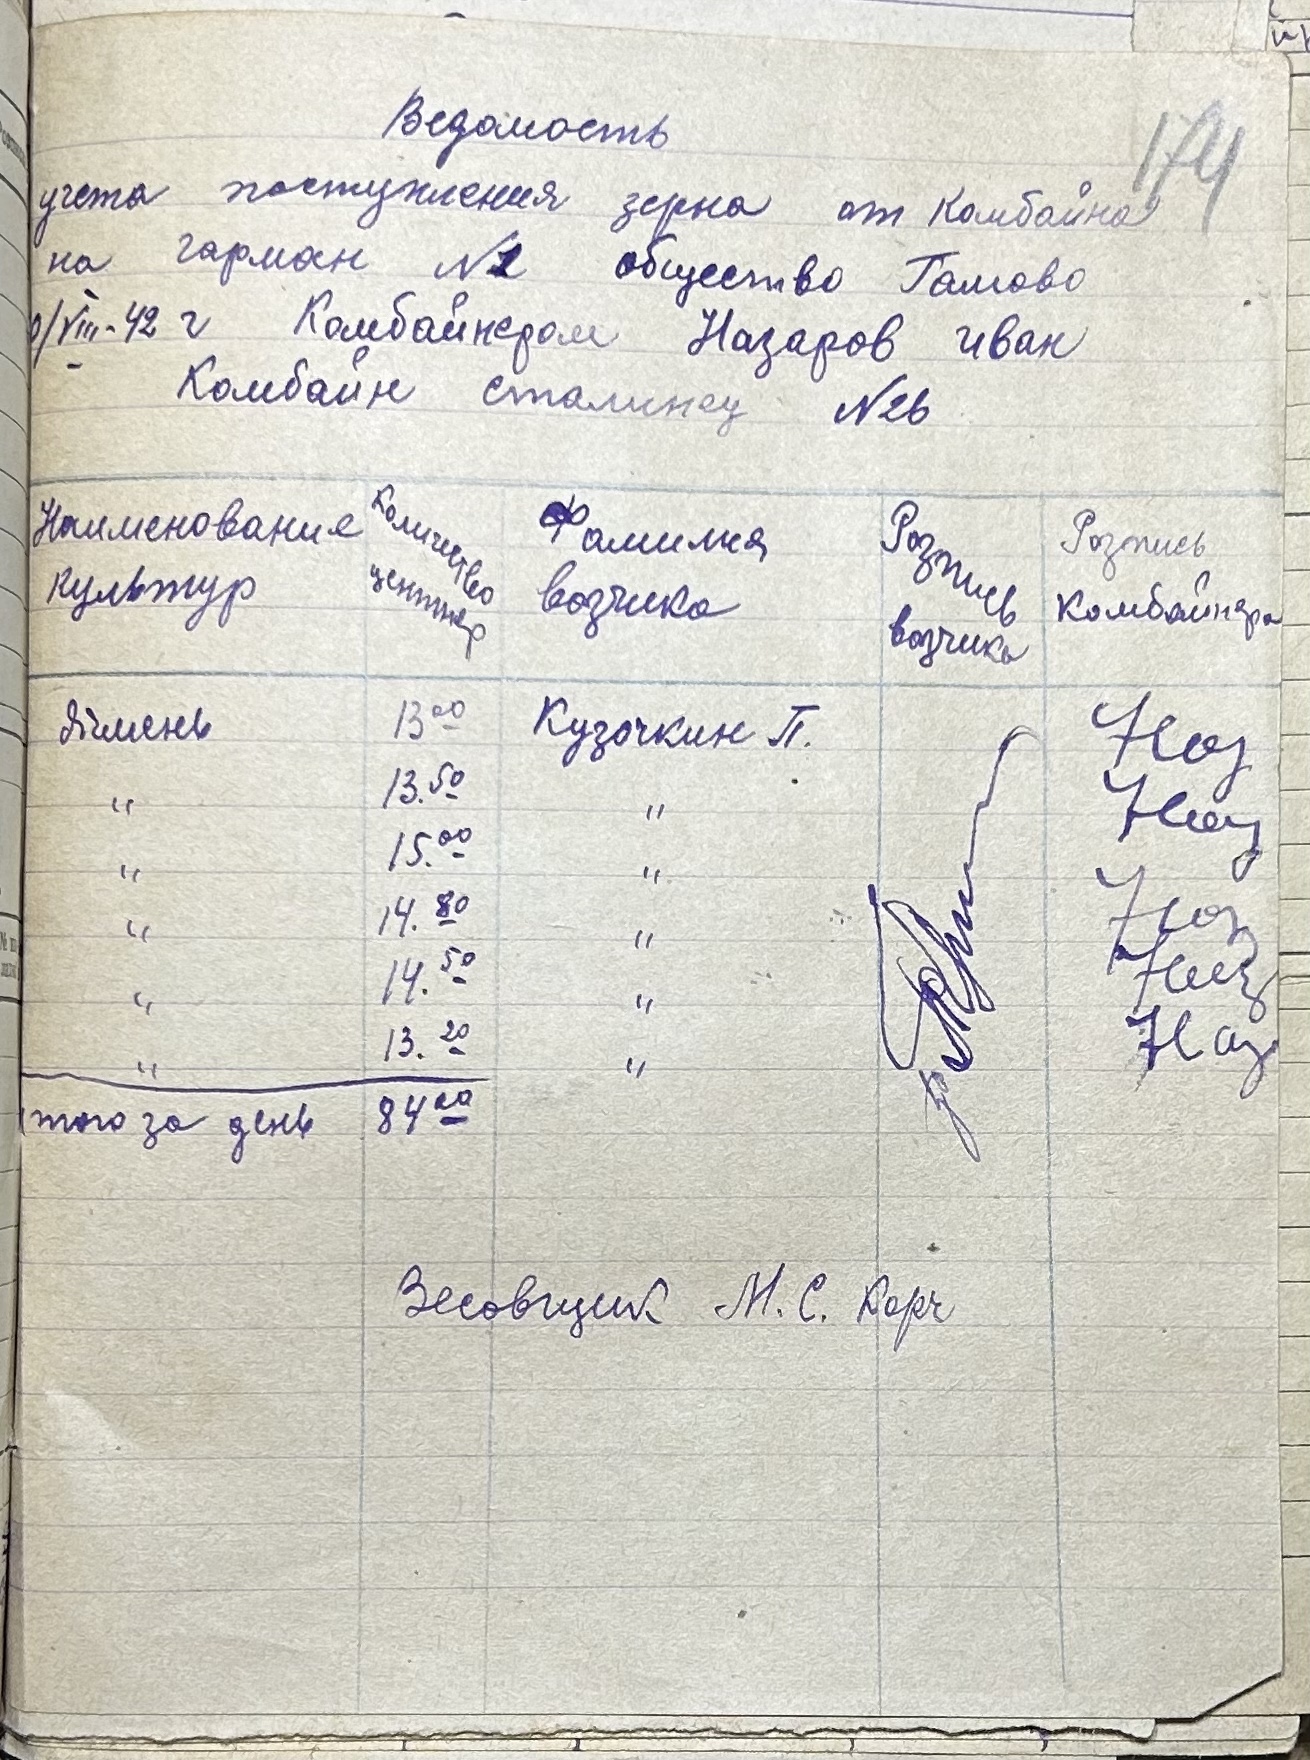 174
Ведомость
учета поступления зерна от комбайна
на гарман №1 общество Гамово
0/VIII-42 г Комбайнером Назаров иван
Комбайн сталинец №26
Наименование культур
Количество центнер
Фамилия возчика
Розпись возчика
Розпись комбайнера
Ячмень 13 00 Кузочкин П. Наз
" 13.50 " Наз
" 15.00 " Наз
" 14.80 " Наз
" 14.50 " Наз
" 13.20 "
того за день 84 00
Весовщик М. С. Корч